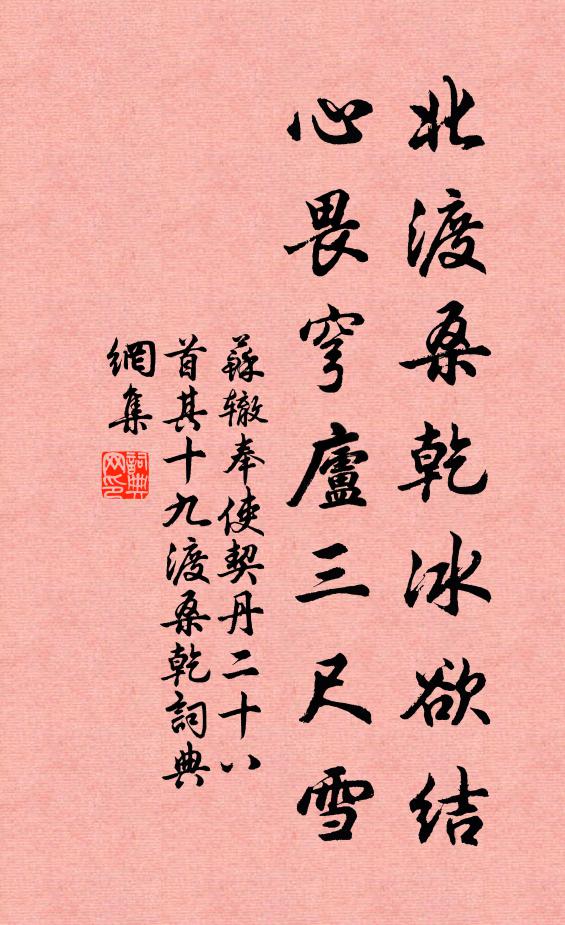 北渡桑乾冰欲結
心畏穹廬三尺雪
蘇轍奉使契丹二十八
首其十九渡桑乾詞典
網集
詞典
网印